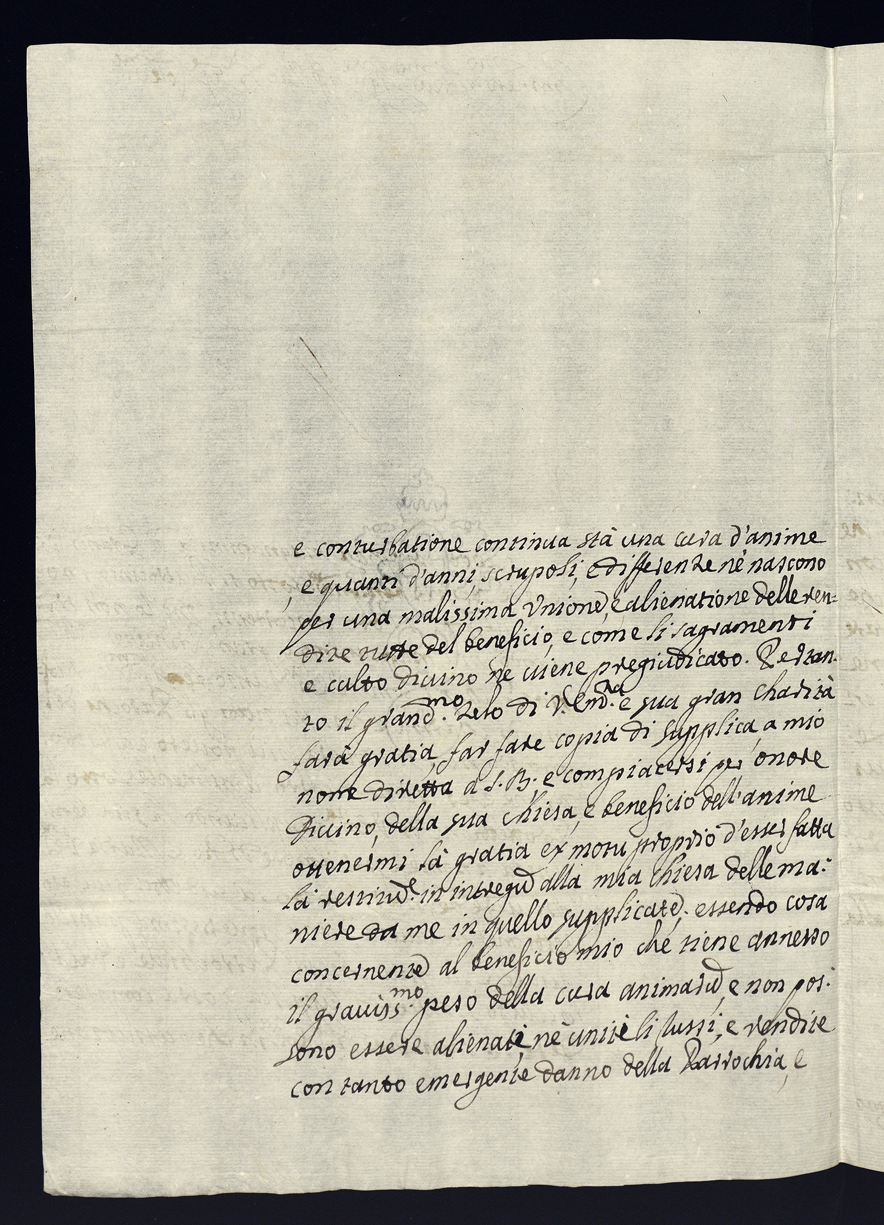 e conturbatione continua stà una cura d'anime
e quanti d'anni, scrupoli, e differenze nè nascono
per una malissima Unione, e alienatione delle ren=
dite tutte del beneficio, e come li sagramenti
e culto divino ne viene pregiudicato. Pertan-
to il grand.mo zelo di V. Em.ra e sua gran charità
farà gratia far fare copia di supplica, a mio
nome diretta a S. B. e compiacersi per onore
Divino, della sua Chiesa, e beneficio dell'anime
ottenermi la gratia ex motu proprio d'esser fatta
la restitud.e in integrũ alla mia Chiesa delle ma:
niere da me in quello supplicate, essendo cosa
concernente al beneficio mio che tiene annesso
il graviss.mo peso della cura animarũ, e non pos:
sono essere alienati, nè uniti li Jussi, e rendite
con tanto emergente danno della Parrochia, e